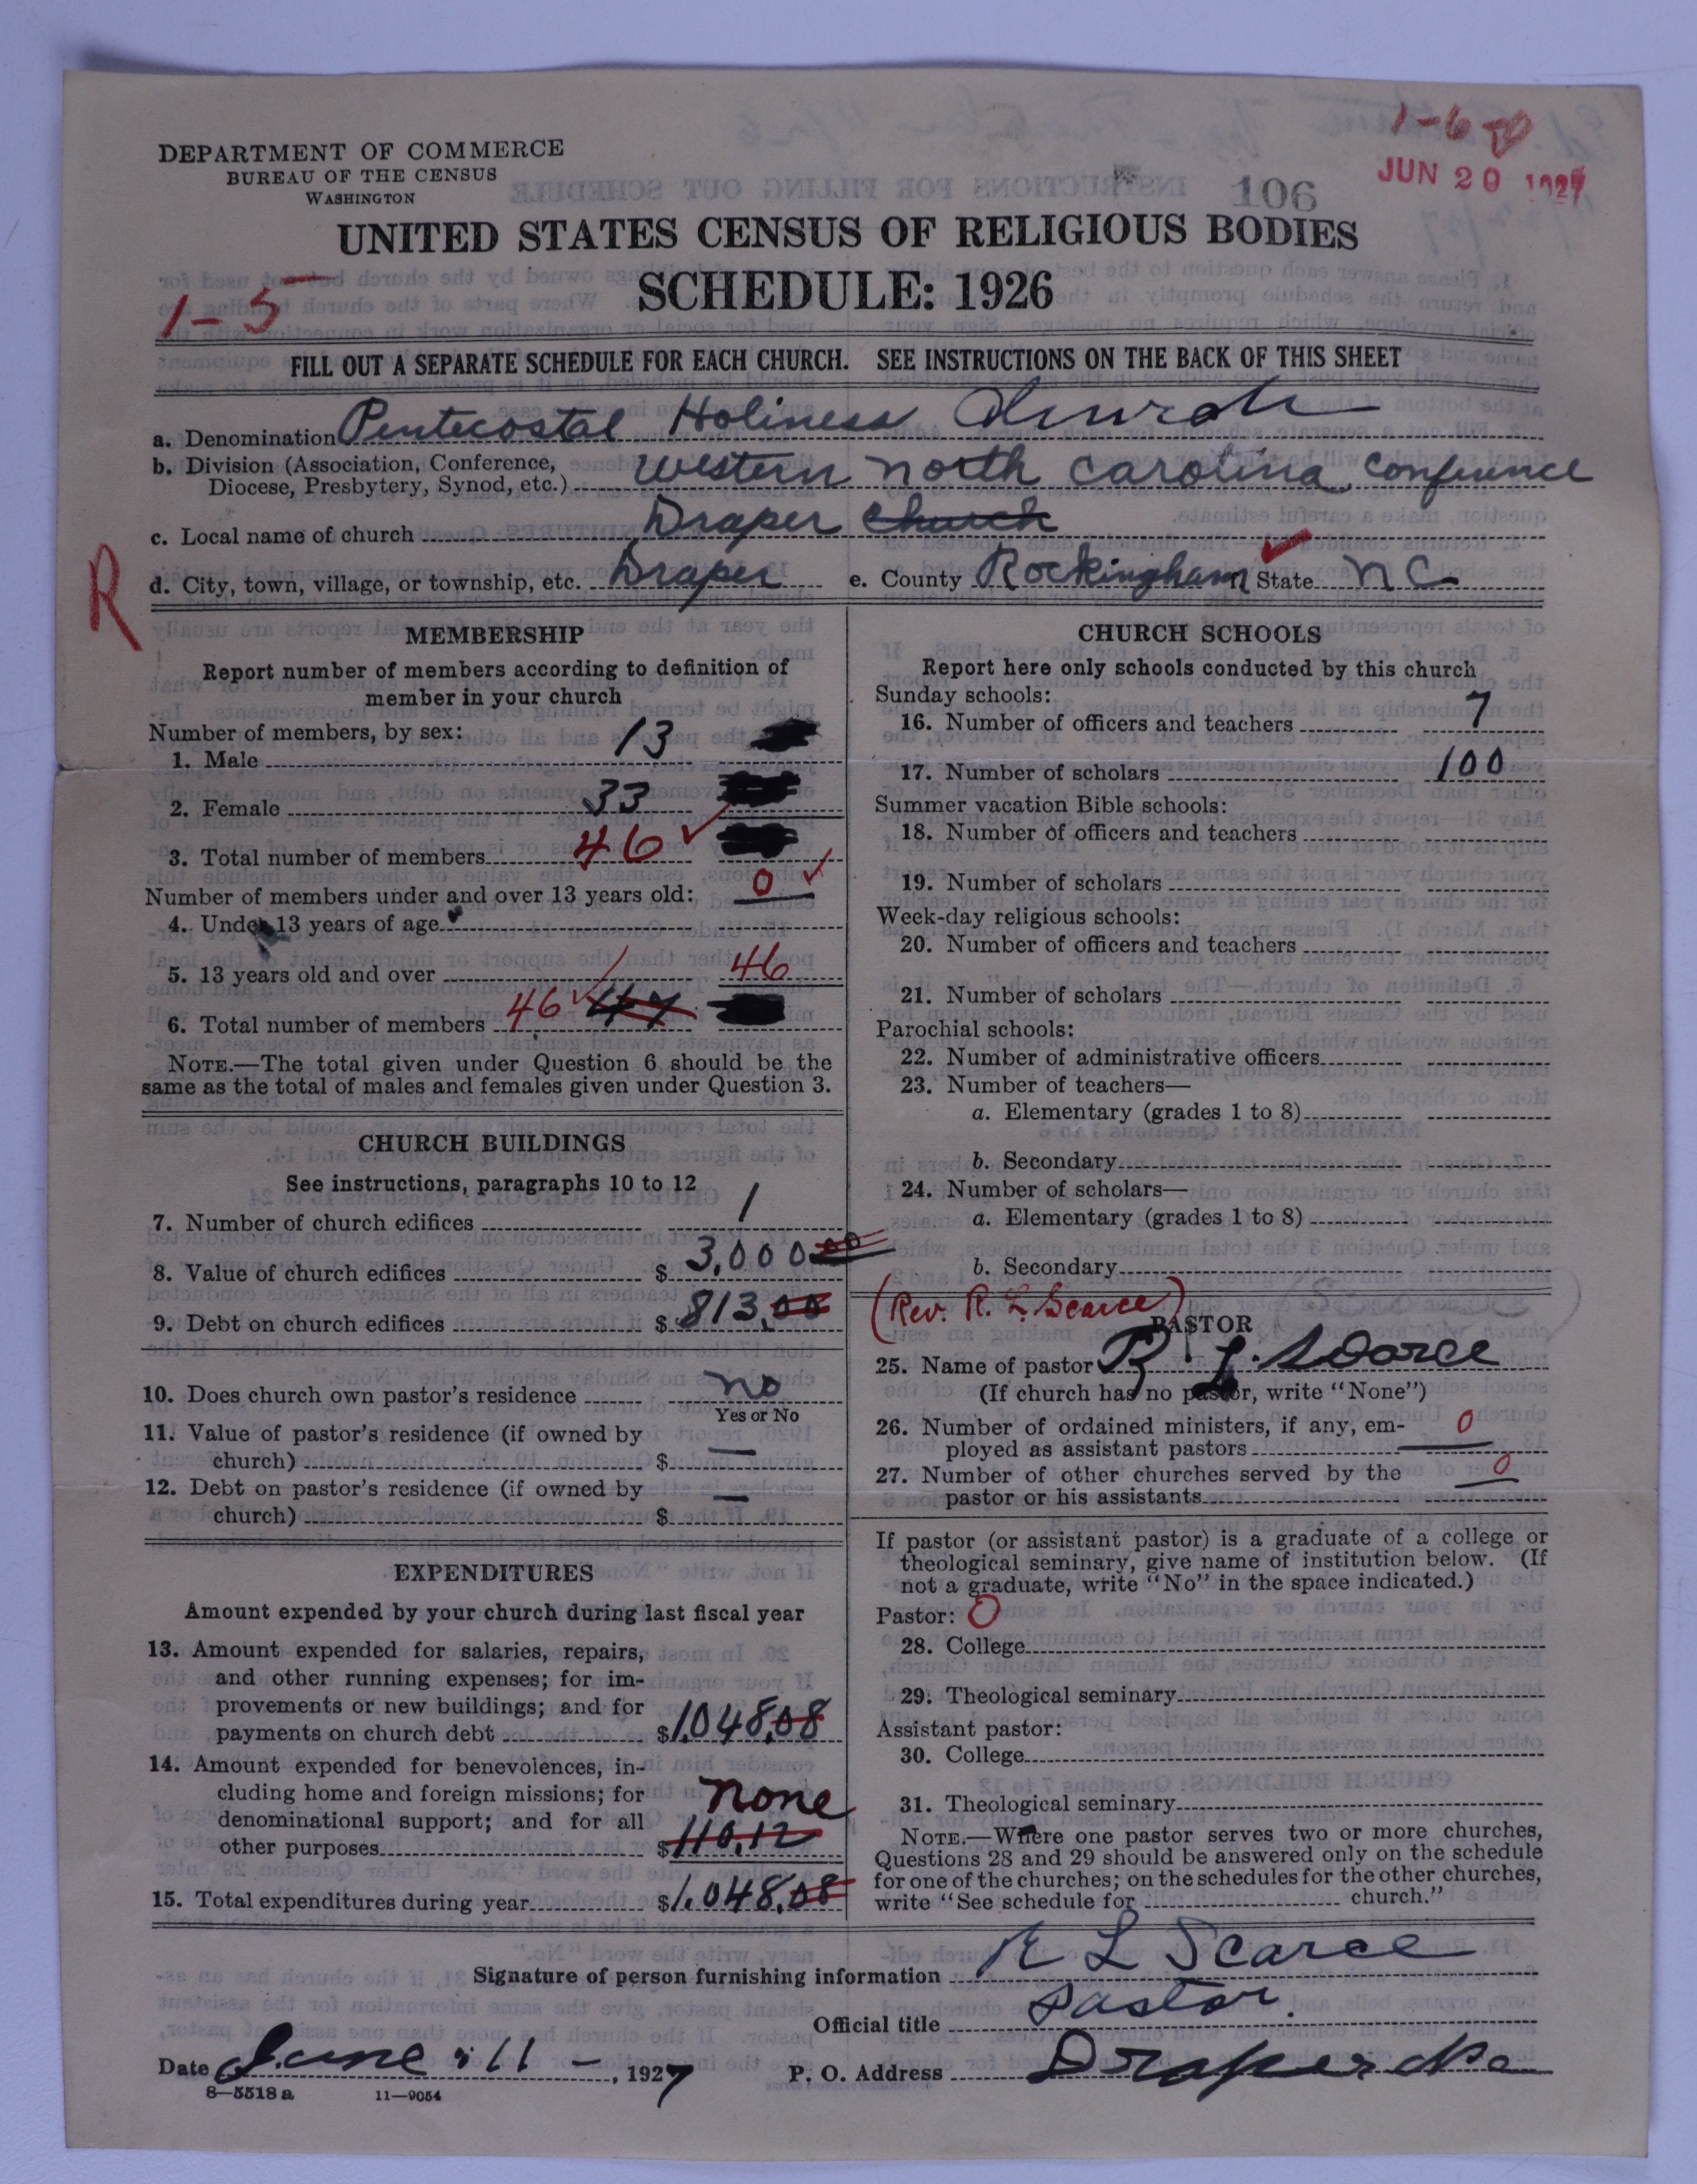 1-6
JUN 20 1927
DEPARTMENT OF COMMERCE
BUREAU OF THE CENSUS
WASHINGTON
106
UNITED STATES CENSUS OF RELIGIOUS BODIES
SCHEDULE: 1926
1-5
FILL OUT A SEPARATE SCHEDULE FOR EACH CHURCH. SEE INSTRUCTIONS ON THE BACK OF THIS SHEET
a. Denomination Pentecostal Holiness Church
b. Division (Association, Conference, Diocese, Presbytery, Synod, etc.) Western North Carolina Conference
c. Local name of church Draper Church
R
d. City, town, village, or township, etc. Draper e. County Rockingham State N C
MEMBERSHIP
Report number of members according to definition of
member in your church
Number of members, by sex:
1. Male 13
2. Female 33
3. Total number of members 46
Number of members under and over 13 years old:
4. Under 13 years of age 0
5. 13 years old and over 46
6. Total number of members 46 47
NOTE.—The total given under Question 6 should be the
same as the total of males and females given under Question 3.
CHURCH BUILDINGS
See instructions, paragraphs 10 to 12
7. Number of church edifices 1
8. Value of church edifices $ 3,000 00
9. Debt on church edifices $ 813,00
10. Does church own pastor's residence no
Yes or No
11. Value of pastor's residence (if owned by
church) $ —
12. Debt on pastor's residence (if owned by
church) $ —
EXPENDITURES
Amount expended by your church during last fiscal year
13. Amount expended for salaries, repairs,
and other running expenses; for im-
provements or new buildings; and for
payments on church debt $1,048,08
14. Amount expended for benevolences, in-
cluding home and foreign missions; for
denominational support; and for all
none
other purposes $110,12
15. Total expenditures during year $1,048,08
CHURCH SCHOOLS
Report here only schools conducted by this church
Sunday schools:
16. Number of officers and teachers 7
17. Number of scholars 100
Summer vacation Bible schools:
18. Number of officers and teachers
19. Number of scholars
Week-day religious schools:
20. Number of officers and teachers
21. Number of scholars
Parochial schools:
22. Number of administrative officers
23. Number of teachers—
a. Elementary (grades 1 to 8)
b. Secondary
24. Number of scholars—
a. Elementary (grades 1 to 8)
b. Secondary
(Rev. R. L. Scarce)
PASTOR
25. Name of pastor R. L. Scarce
(If church has no pastor, write "None")
26. Number of ordained ministers, if any, em-
ployed as assistant pastors 0
27. Number of other churches served by the
pastor or his assistants 0
If pastor (or assistant pastor) is a graduate of a college or
theological seminary, give name of institution below. (If
not a graduate, write "No" in the space indicated.)
Pastor: 0
28. College
29. Theological seminary
Assistant pastor:
30. College
31. Theological seminary
NOTE.—Where one pastor serves two or more churches,
Questions 28 and 29 should be answered only on the schedule
for one of the churches; on the schedules for the other churches,
write "See schedule for church."
Signature of person furnishing information R L Scarce
Official title Pastor.
Date June 11 - , 1927 P. O. Address Draper
8—5518 a 11—9054